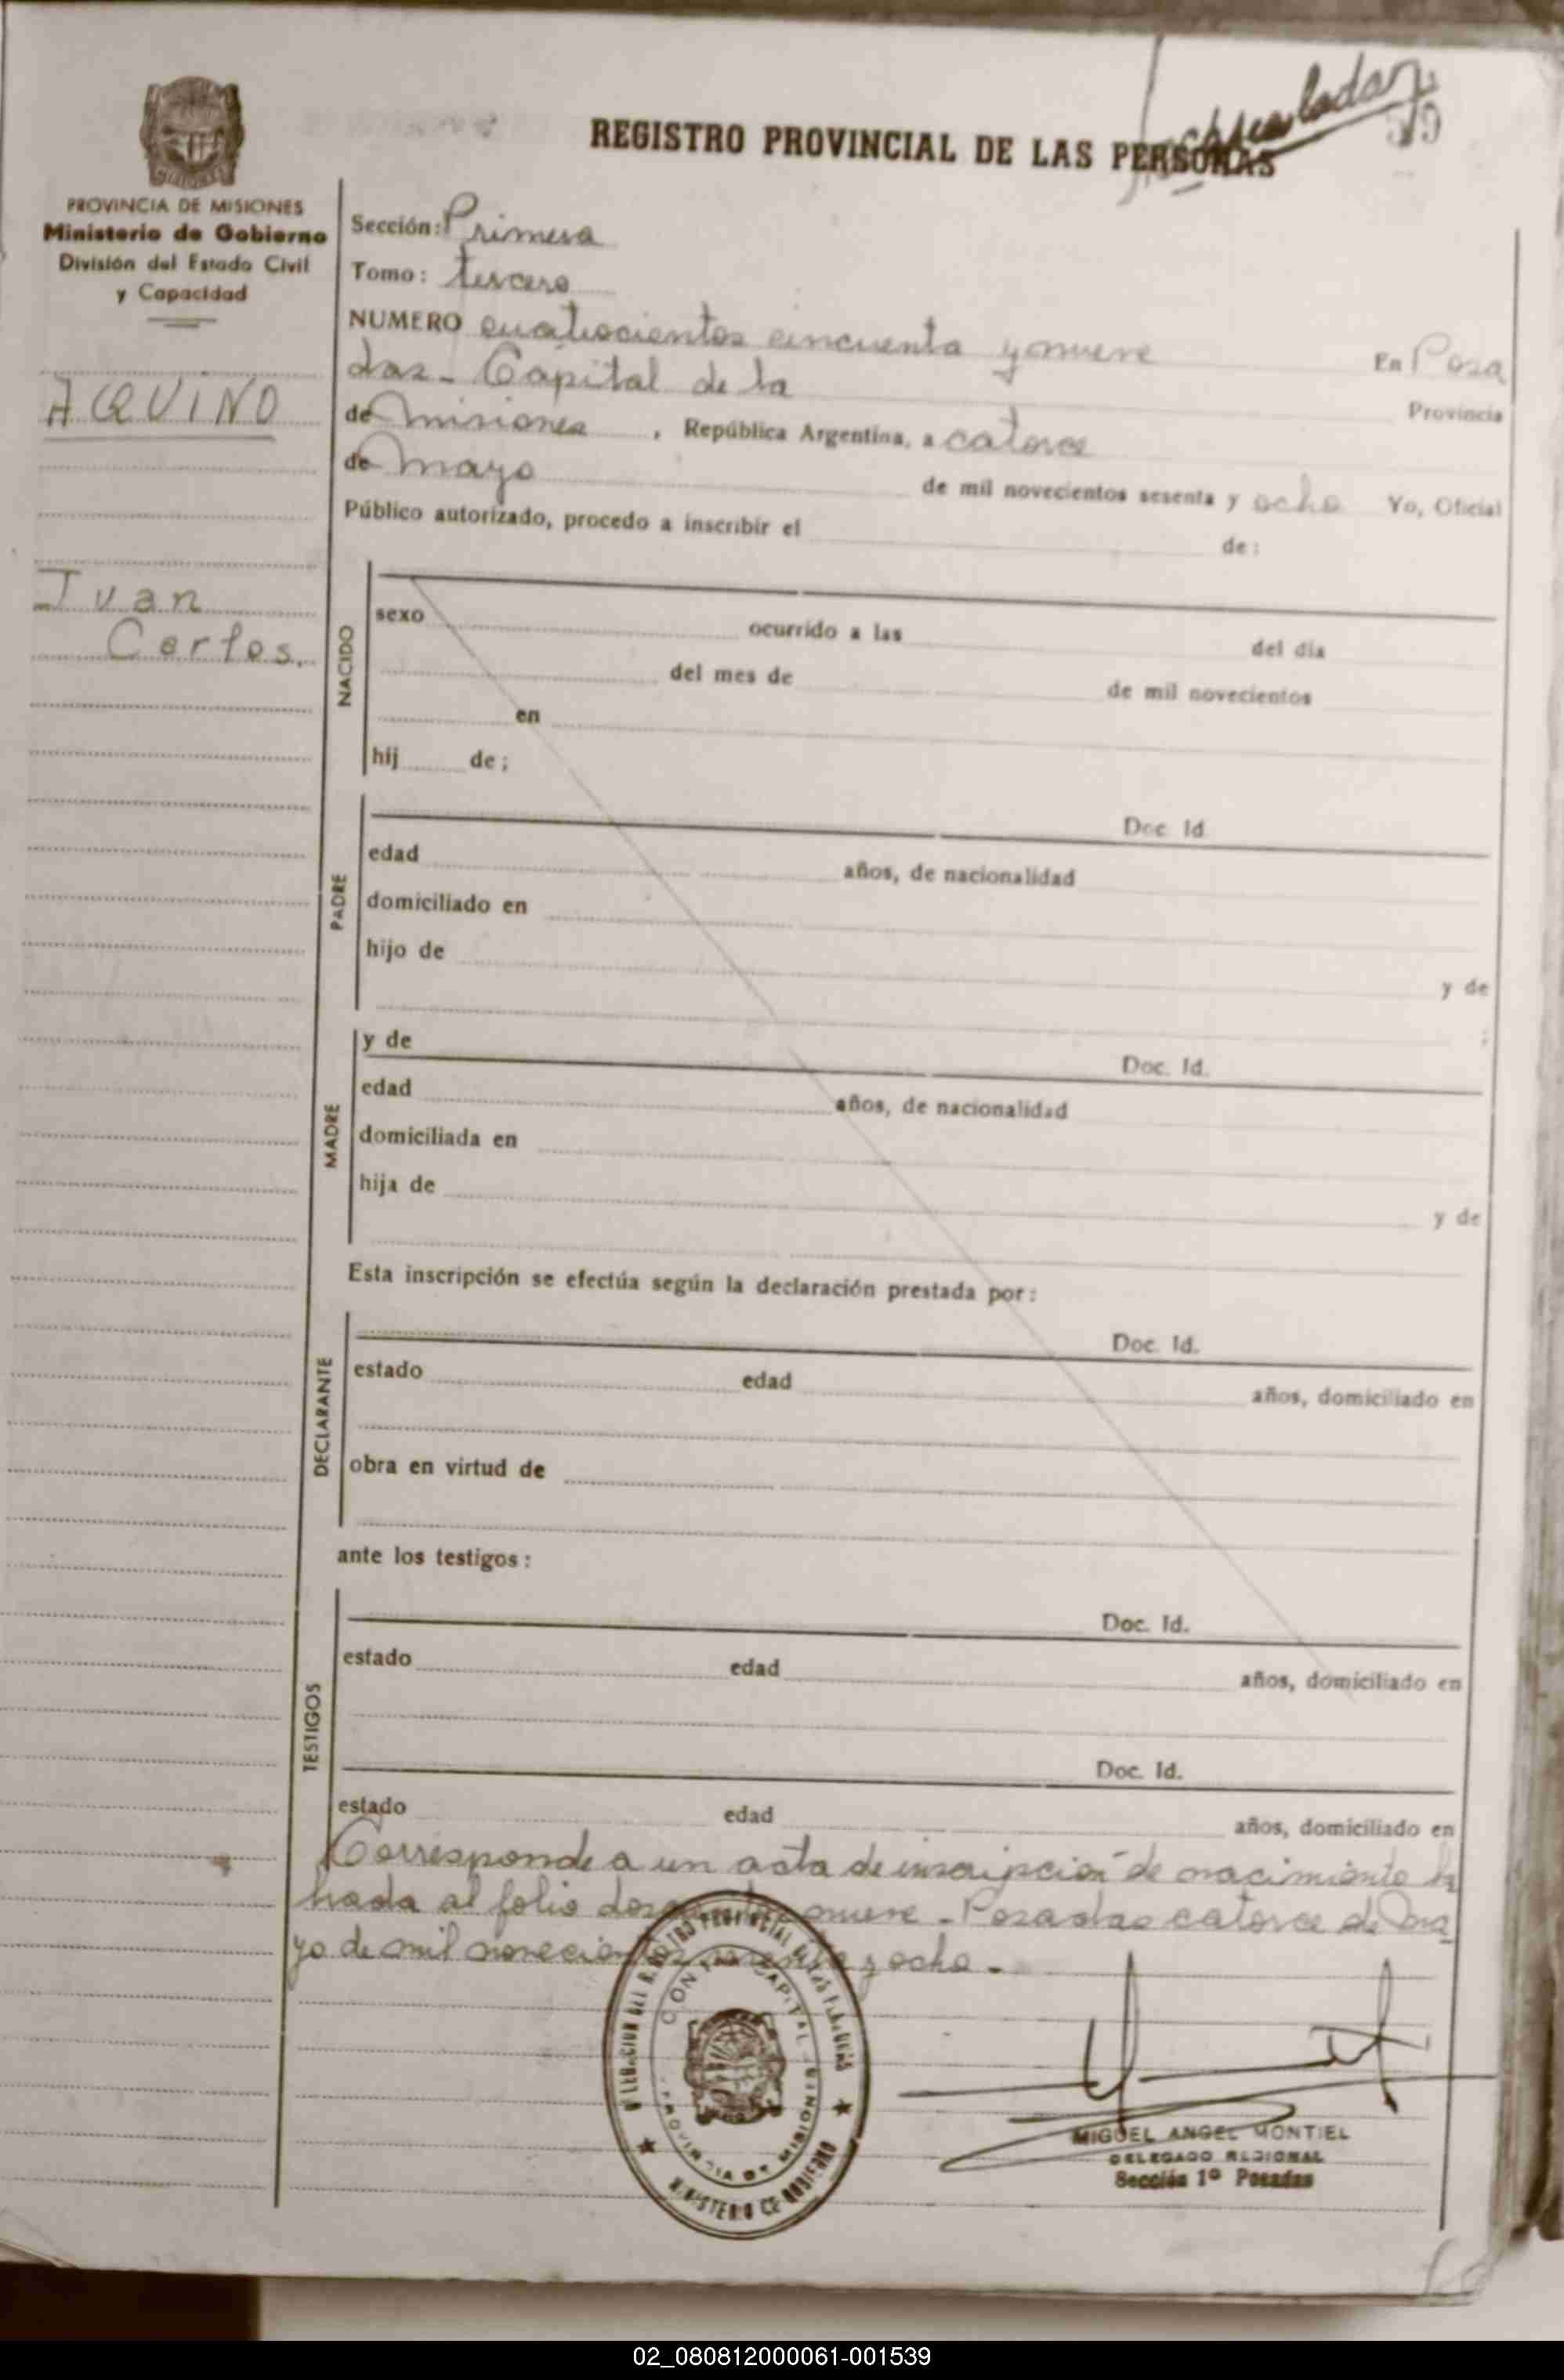 REGISTRO PROVINCIAL DE LAS PERSONAS
59
PROVINCIA DE MISIONES
Ministerio de Gobierno
División del Estado Civil
y Capacidad
AQUINO
Juan
Carlos.
Sección: Primera
Tomo: tercero
NUMERO cuatrocientos cincuenta y nueve En Posa
das - Capital de la Provincia
de misiones, República Argentina, a catorce
de mayo de mil novecientos sesenta y ocho Yo, Oficial
Público autorizado, procedo a inscribir el de:
NACIDO
sexo ocurrido a las del día
del mes de de mil novecientos
en
hij de;
PADRE
Doc. Id.
edad años, de nacionalidad
domiciliado en
hijo de y de
;
MADRE
y de Doc. Id.
edad años, de nacionalidad
domiciliada en
hija de y de
Esta inscripción se efectúa según la declaración prestada por:
DECLARANTE
Doc. Id.
estado edad años, domiciliado en
obra en virtud de
ante los testigos:
TESTIGOS
Doc. Id.
estado edad años, domiciliado en
Doc. Id.
estado edad años, domiciliado en
Corresponde a un acta de inscripción de nacimiento la
brada al folio nueve - Posadas catorce de ma
yo de mil y ocho -
PROVINCIA DE MISIONES
MINISTERIO DE GOBIERNO
MIGUEL ANGEL MONTIEL
DELEGADO REGIONAL
Sección 1º Posadas
02_080812000061-001539